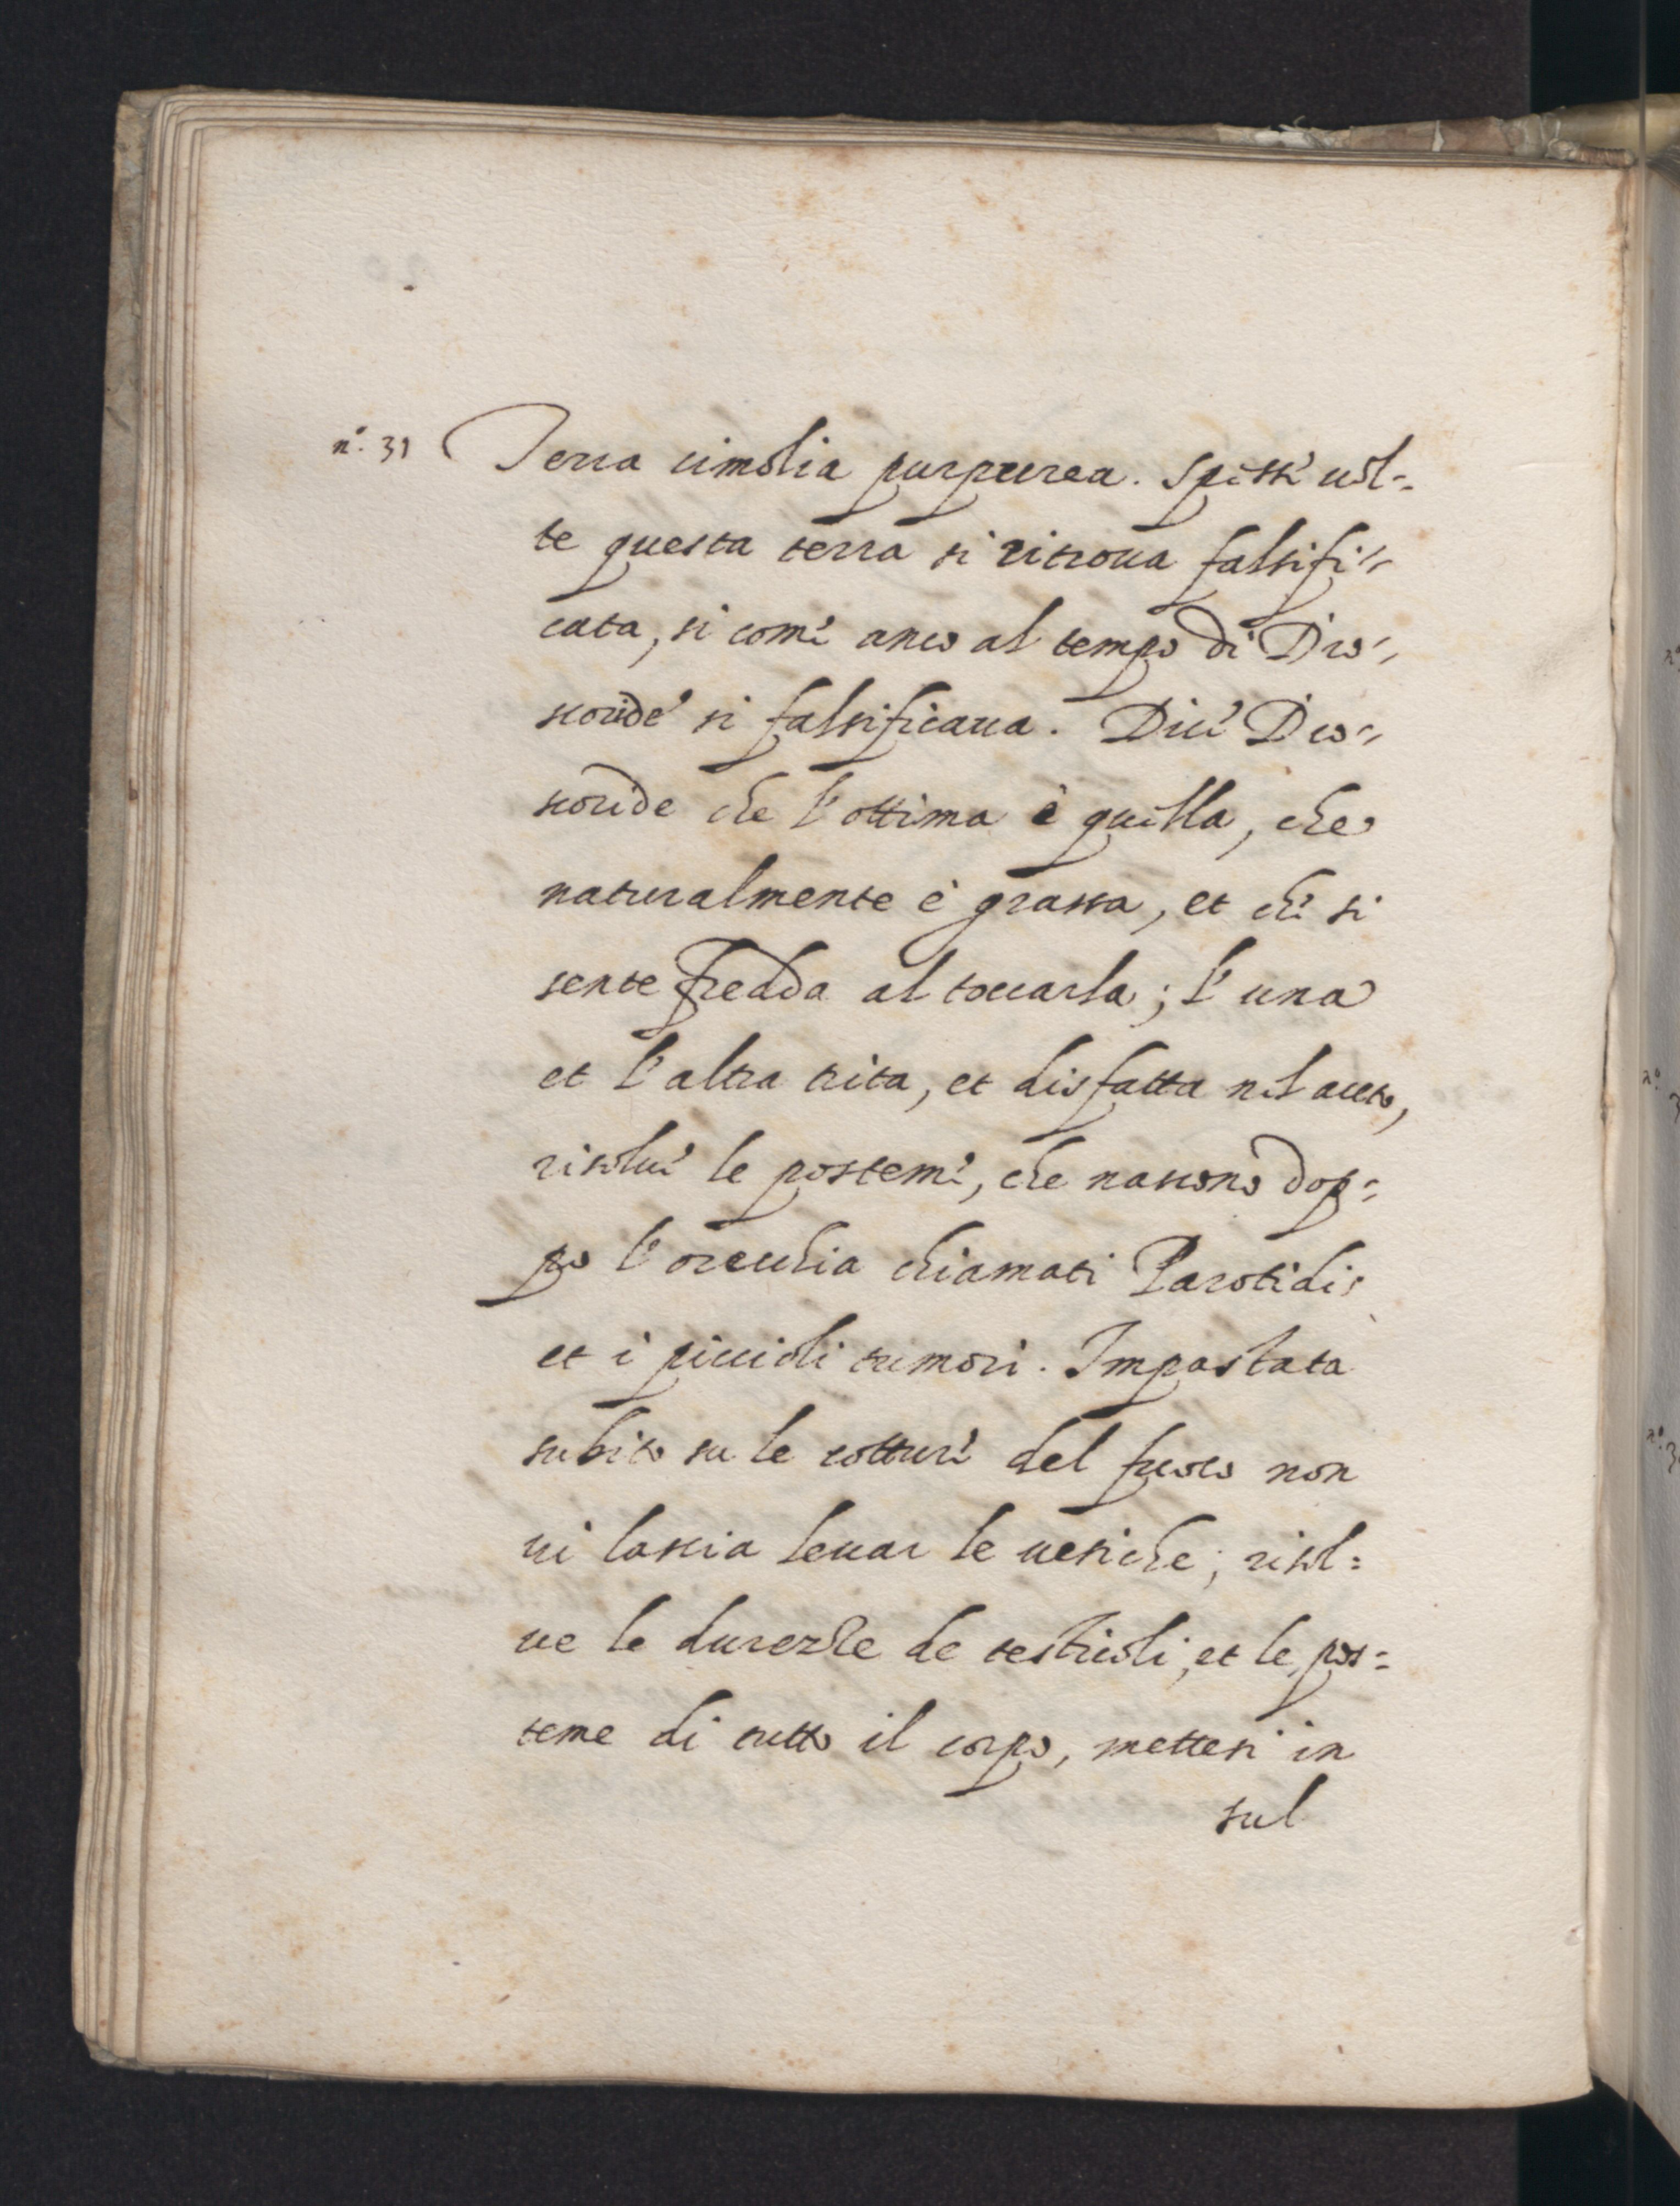 n.° 31 Terra cimolia purpurea. Spesse uol=
te questa terra si ritroua falsifi=
cata, si come anco al tempo di Dio=
scoride si falsificaua. Dice Dio=
scoride che l'ottima è quella, che
naturalmente è grassa, et che si
sente fredda al toccarla; l'una
et l'altra trita, et disfatta nel aceto,
risolue le posteme, che nascono dop=
po l'orecchia chiamati Parotidi;
et i piccioli tumori. Impastata
subito su le cotture del fuoco non
ui lascia leuar le uesiche; risol=
ue le durezze de testicoli, et le pos=
teme di tutto il corpo, mettesi in
sul